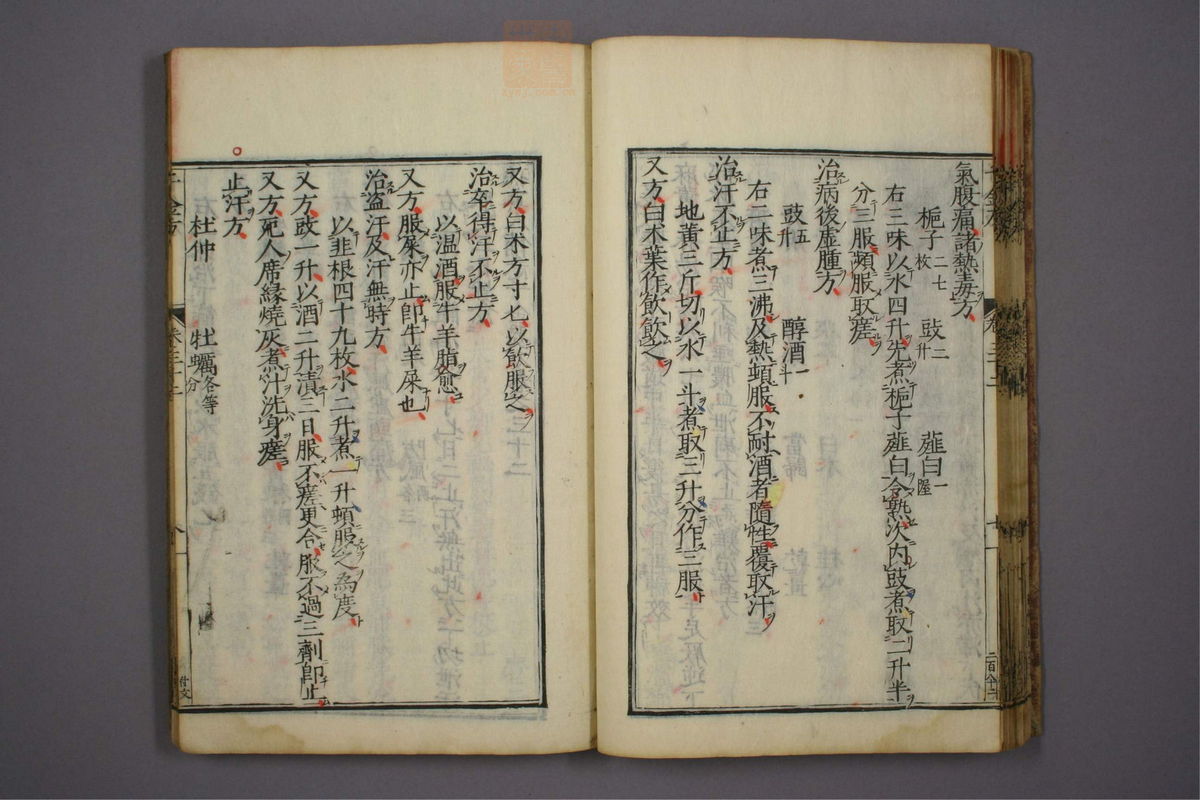 氣腹痛諸熱毒方
梔子二七枚 豉二升 薤白一握
右三味以水四升先煮梔子薤白令熟次内豉煮取二升半
分三服頻服取瘥
治病後虛腫方
豉五升 醇酒一斗
右二味煮三沸及熱頓服不耐酒者隨性覆取汗
治汗不止方
地黃三斤切以水一斗煮取三升分作三服
又方白朮葉作飲飲之
又方白朮方寸匕以飲服之 三十二
治卒得汗不止方
以温酒服牛羊脂愈
又方服屎亦止即牛羊屎也
治盗汗及汗無時方
以韭根四十九枚水二升煮一升頓服之為度
又方豉一升以酒二升漬三日服不瘥更令服不過三劑即止
又方死人席緣燒灰煮汁洗身瘥
止汗方
杜仲 牡蠣各等分
千金方 卷三十二